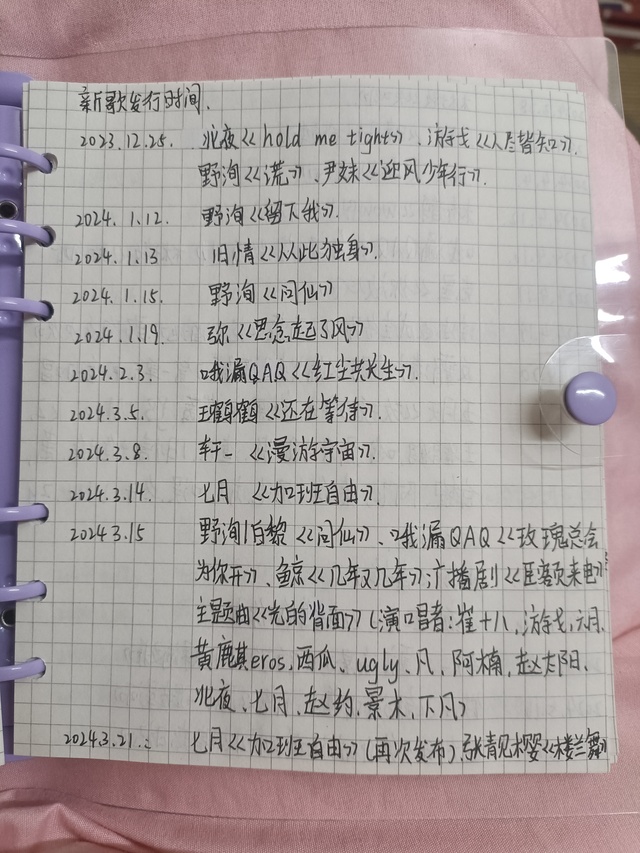 新歌发行时间.
2023.12.25. 北夜《hold me tight》、游戈《人尽皆知》.
野洵《谎》、尹妹《迎风少年行》.
2024.1.12. 野洵《留下我》.
2024.1.13 旧情《从此独身》.
2024.1.15. 野洵《问仙》
2024.1.19. 弥《思念起了风》
2024.2.3. 哦漏QAQ《红尘共长生》.
2024.3.5. 王鹤鹤《还在等待》.
2024.3.8. 轩一《漫游宇宙》.
2024.3.14. 七月《加班自由》.
2024.3.15 野洵/白黎《问仙》、哦漏QAQ《玫瑰总会
为你开》、鲸《几年又几年》;广播剧《匿名来电》
主题曲《光的背面》(演唱者:崔十八、游戈、六月、
黄鹿其eros、西瓜、ugly、凡、阿楠、赵太阳、
北夜、七月、赵约、景木、下凡)
2024.3.21.: 七月《加班自由》(再次发布)、张靓樱《楼兰舞》